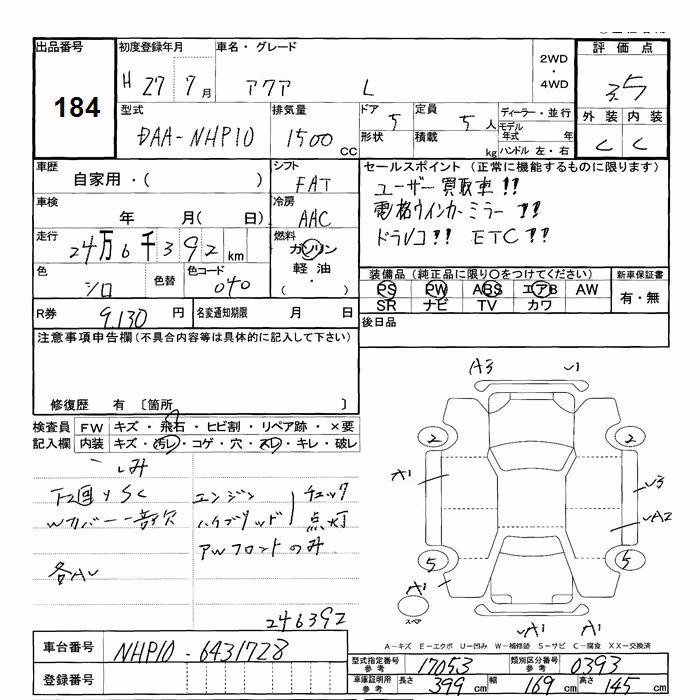 出品番号
184
初度登録年月
H 27 7月
車名・グレード
アクア L
2WD
・
4WD
評価点
3.5
外装 内装
C C
型式
DAA-NHP10
排気量
1500 CC
ドア 5
定員 5人
形状
積載 kg
ディーラー・並行
モデル年式 年
ハンドル 左・右
車歴
自家用・( )
シフト
FAT
車検
年 月( 日)
冷房
AAC
走行
24万6千392 km
燃料
ガソリン
軽油
( ・ )
色
シロ
色替
色コード
040
R券
9.130 円
名変通知期限 月 日
セールスポイント(正常に機能するものに限ります)
ユーザー買取車!!
電格ウインカーミラー!!
ドラレコ!! ETC!!
装備品(純正品に限り○をつけてください)
PS PW ABS エアB AW
SR ナビ TV カワ
新車保証書
有・無
後日品
注意事項申告欄(不具合内容等は具体的に記入して下さい)
修復歴 有 〔箇所 〕
検査員 FW キズ・飛石・ヒビ割・リペア跡・×要
記入欄 内装 キズ・汚レ・コゲ・穴・スレ・キレ・破レ
エンジン チェック
ハイブリッド 点灯
AWフロントのみ
Wカバー一部欠
各AU
246392
A3
U1
2
2
A1
U3
UA2
5
5
A1
スペア
UA1
A1
A-キズ E-エクボ U-凹み W-補修跡 S-サビ C-腐食 XX-交換済
車台番号
NHP10-6431728
登録番号
型式指定番号 参考 17053
類別区分番号 参考 0393
車庫証明用 参考 長さ 399 cm 幅 169 cm 高さ 145 cm